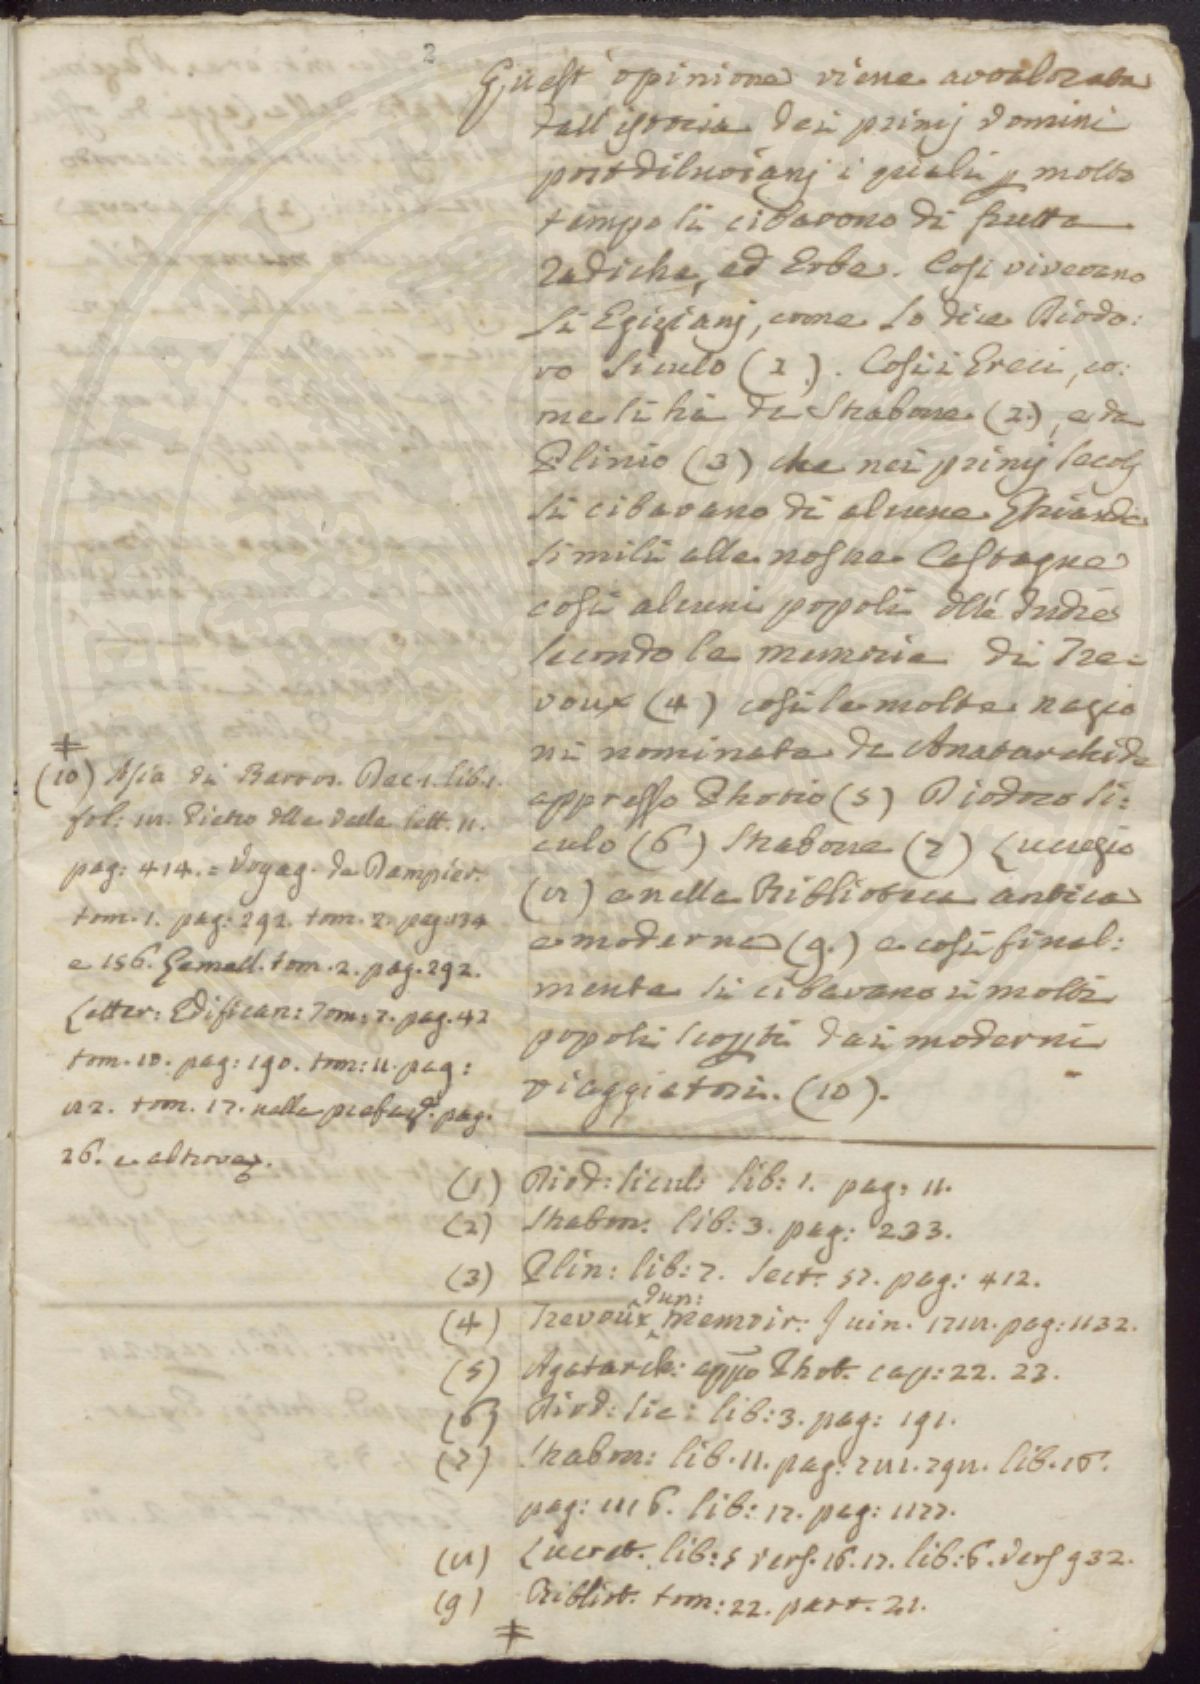 2
Quest' opinione viene avvalorata
dall' istoria dei primj domini
postdiluvianj i quali p molto
tempo si cibavono di frutta
radiche, ed Erbe. Cosi vivevano
li Egizianj, come lo dice Diodo:
ro Siculo (1). Cosi i Greci, co:
me si hà da Strabone (2), e da
Plinio (3) che nei primj secolj
si cibavano di alcune Ghiande
simili alle nostre Castagne
cosi alcuni popoli dll' Indie
secondo le memorie di Tre=
voux (4) cosi le molte nazio
ni nominate da Anatarchide
appresso Photio (5) Diodoro Si:
culo (6) Strabone (7) Lucrezio
(8) e nella Biblioteca antica
e moderna (9.) e così final:
mente si cibavano i molti
popoli scopti dai moderni
viaggiatori. (10).
(1) Diod: Sicul: lib: 1. pag: 11.
(2) Strabon: lib: 3. pag: 233.
(3) Plin: lib: 7. Sect. 57. pag: 412.
(4) Trevoux memoir: Juin. 1718. pag: 1132.
(5) Agatarch: appo Phot. cap: 22. 23.
(6) Diod: Sic: lib: 3. pag: 191.
(7) Strabon: lib. 11. pag: 781. 798. lib. 16.
pag: 1116. lib: 17. pag: 1177.
(8) Lucret. lib: 5 vers. 16. 17. lib: 6. vers 932.
(9) Bibliot. tom: 22. part. 21.
‡
‡
(10) Asia di Barros. Dec. 1. lib. 1.
fol: 8. Pietro dlla Valle lett. 11.
pag: 414. = Voyag. de Dampier.
tom. 1. pag: 292. tom. 2. pag: 134
e 156. Gemell. tom. 2. pag. 292.
Letter: Edifican: Tom: 7. pag. 42
tom. 10. pag: 190. tom: 11. pag:
182. tom. 17. nella prefaz. pag.
26. e altrove.